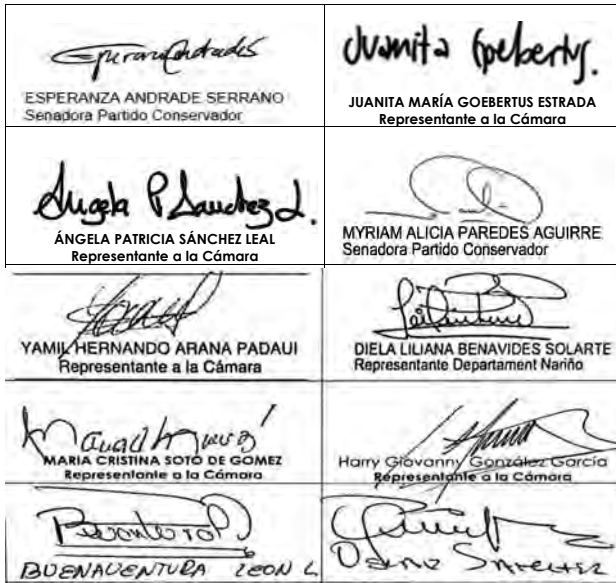 Esperanza Andrade S
ESPERANZA ANDRADE SERRANO
Senadora Partido Conservador
Juanita Goebertus.
JUANITA MARÍA GOEBERTUS ESTRADA
Representante a la Cámara
Angela P Sanchez L.
ÁNGELA PATRICIA SÁNCHEZ LEAL
Representante a la Cámara
MYRIAM ALICIA PAREDES AGUIRRE
Senadora Partido Conservador
YAMIL HERNANDO ARANA PADAUI
Representante a la Cámara
DIELA LILIANA BENAVIDES SOLARTE
Representante Departament Nariño
MARIA CRISTINA SOTO DE GOMEZ
Representante a la Cámara
Harry Giovanny González García
Representante a la Cámara
BUENAVENTURA LEON L
SANCHEZ